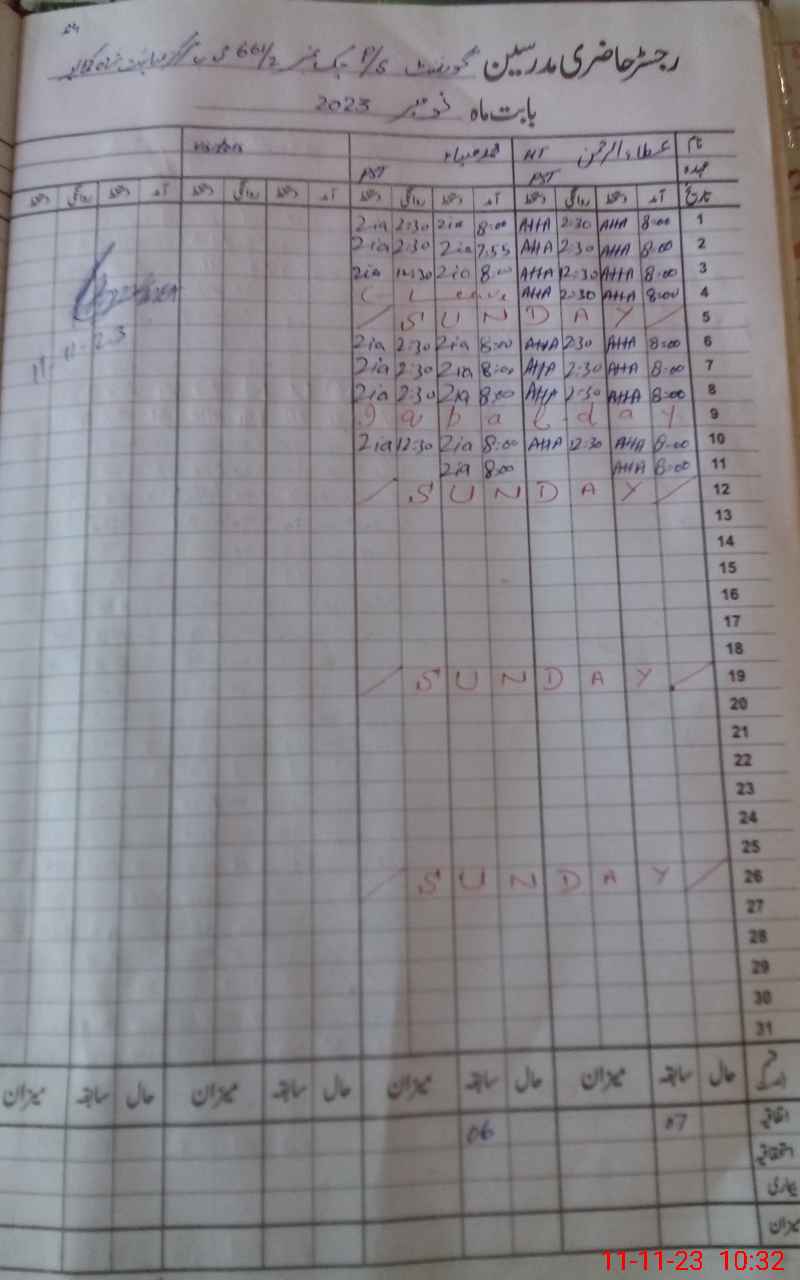 رجسٹر حاضری مدرسین گورنمنٹ P/S چک نمبر 661/2
بابت ماہ نومبر 2023
نام عطاء الرحمن HT محمد ضیاء
عہدہ PST PST
تاریخ آمد دستخط روانگی دستخط آمد دستخط روانگی دستخط آمد دستخط روانگی دستخط آمد دستخط روانگی دستخط
1 8:00 AHA 2:30 AHA 8:00 Zia 2:30 Zia
2 8:00 AHA 2:30 AHA 7:55 Zia 2:30 Zia
3 8:00 AHA 12:30 AHA 8:00 Zia 12:30 Zia
4 8:00 AHA 2:30 AHA Leave
5 SUNDAY
6 8:00 AHA 2:30 AHA 8:00 Zia 2:30 Zia
7 8:00 AHA 2:30 AHA 8:00 Zia 2:30 Zia
8 8:00 AHA 2:30 AHA 8:00 Zia 2:30 Zia
9 Iqbal day
10 8:00 AHA 12:30 AHA 8:00 Zia 12:30 Zia
11 8:00 AHA 8:00 Zia
11-11-23
12 SUNDAY
13
14
15
16
17
18
19 SUNDAY
20
21
22
23
24
25
26 SUNDAY
27
28
29
30
31
حال سابقہ میزان حال سابقہ میزان حال سابقہ میزان حال سابقہ میزان
اتفاقیہ 07 06
استحقاقیہ
بیماری
میزان
11-11-23 10:32